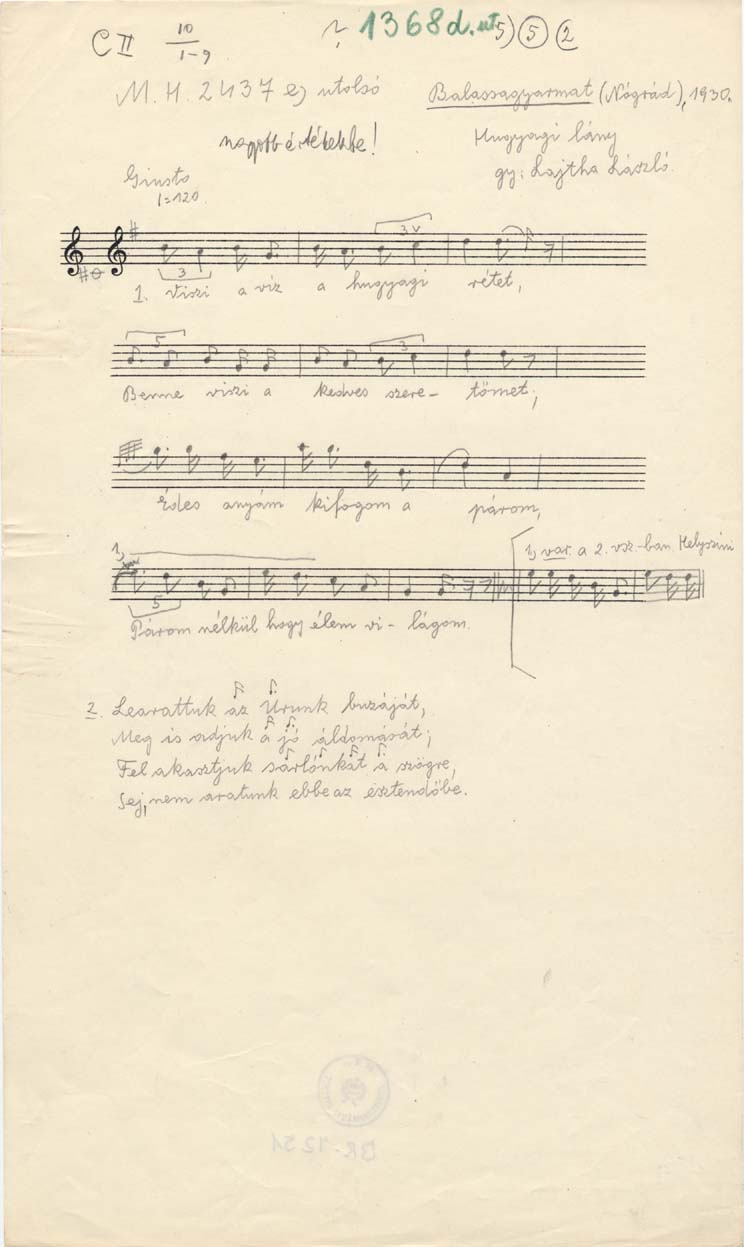 C II 10/1-9 ? 1368 d. ut. 5) 5 2
M. H. 2437 e) utolsó
Balassagyarmat (Nógrád), 1930.
nagyobb értékekbe!
Hugyagi lány
gy: Lajtha László.
Giusto
♩=120.
3 3
1. Viszi a víz a hugyagi rétet,
5 3
Benne viszi a kedves szere- tőmet;
Édes anyám kifogom a párom,
1, 1, var. a 2. vsz.-ban. Helyszíni
5
Párom nélkül hogy élem vi- lágom.
2. Learattuk az Urunk buzáját,
Meg is adjuk a jó áldomását;
Fel akasztjuk sarlónkat a szögre,
Sej, nem aratunk ebbe az esztendőbe.
BR-1251